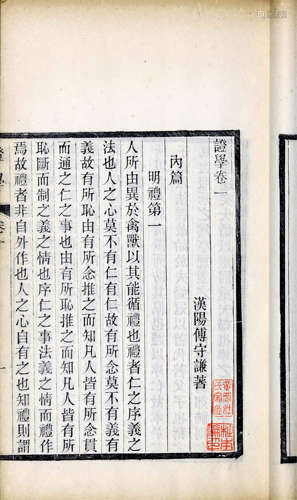 證學卷一
漢陽傅守謙著
內篇
明禮第一
人所由異於禽獸以其能循禮也禮者仁之序義之
法也人之心莫不有仁有仁故有所念莫不有義有
義故有所恥由有所念推之而知凡人皆有所念貫
而通之仁之事也由有所恥推之而知凡人皆有所
恥斷而制之義之情也序仁之事法義之情而禮作
焉故禮者非自外作也人之心自有之也知禮則謂
證學
卷一
一